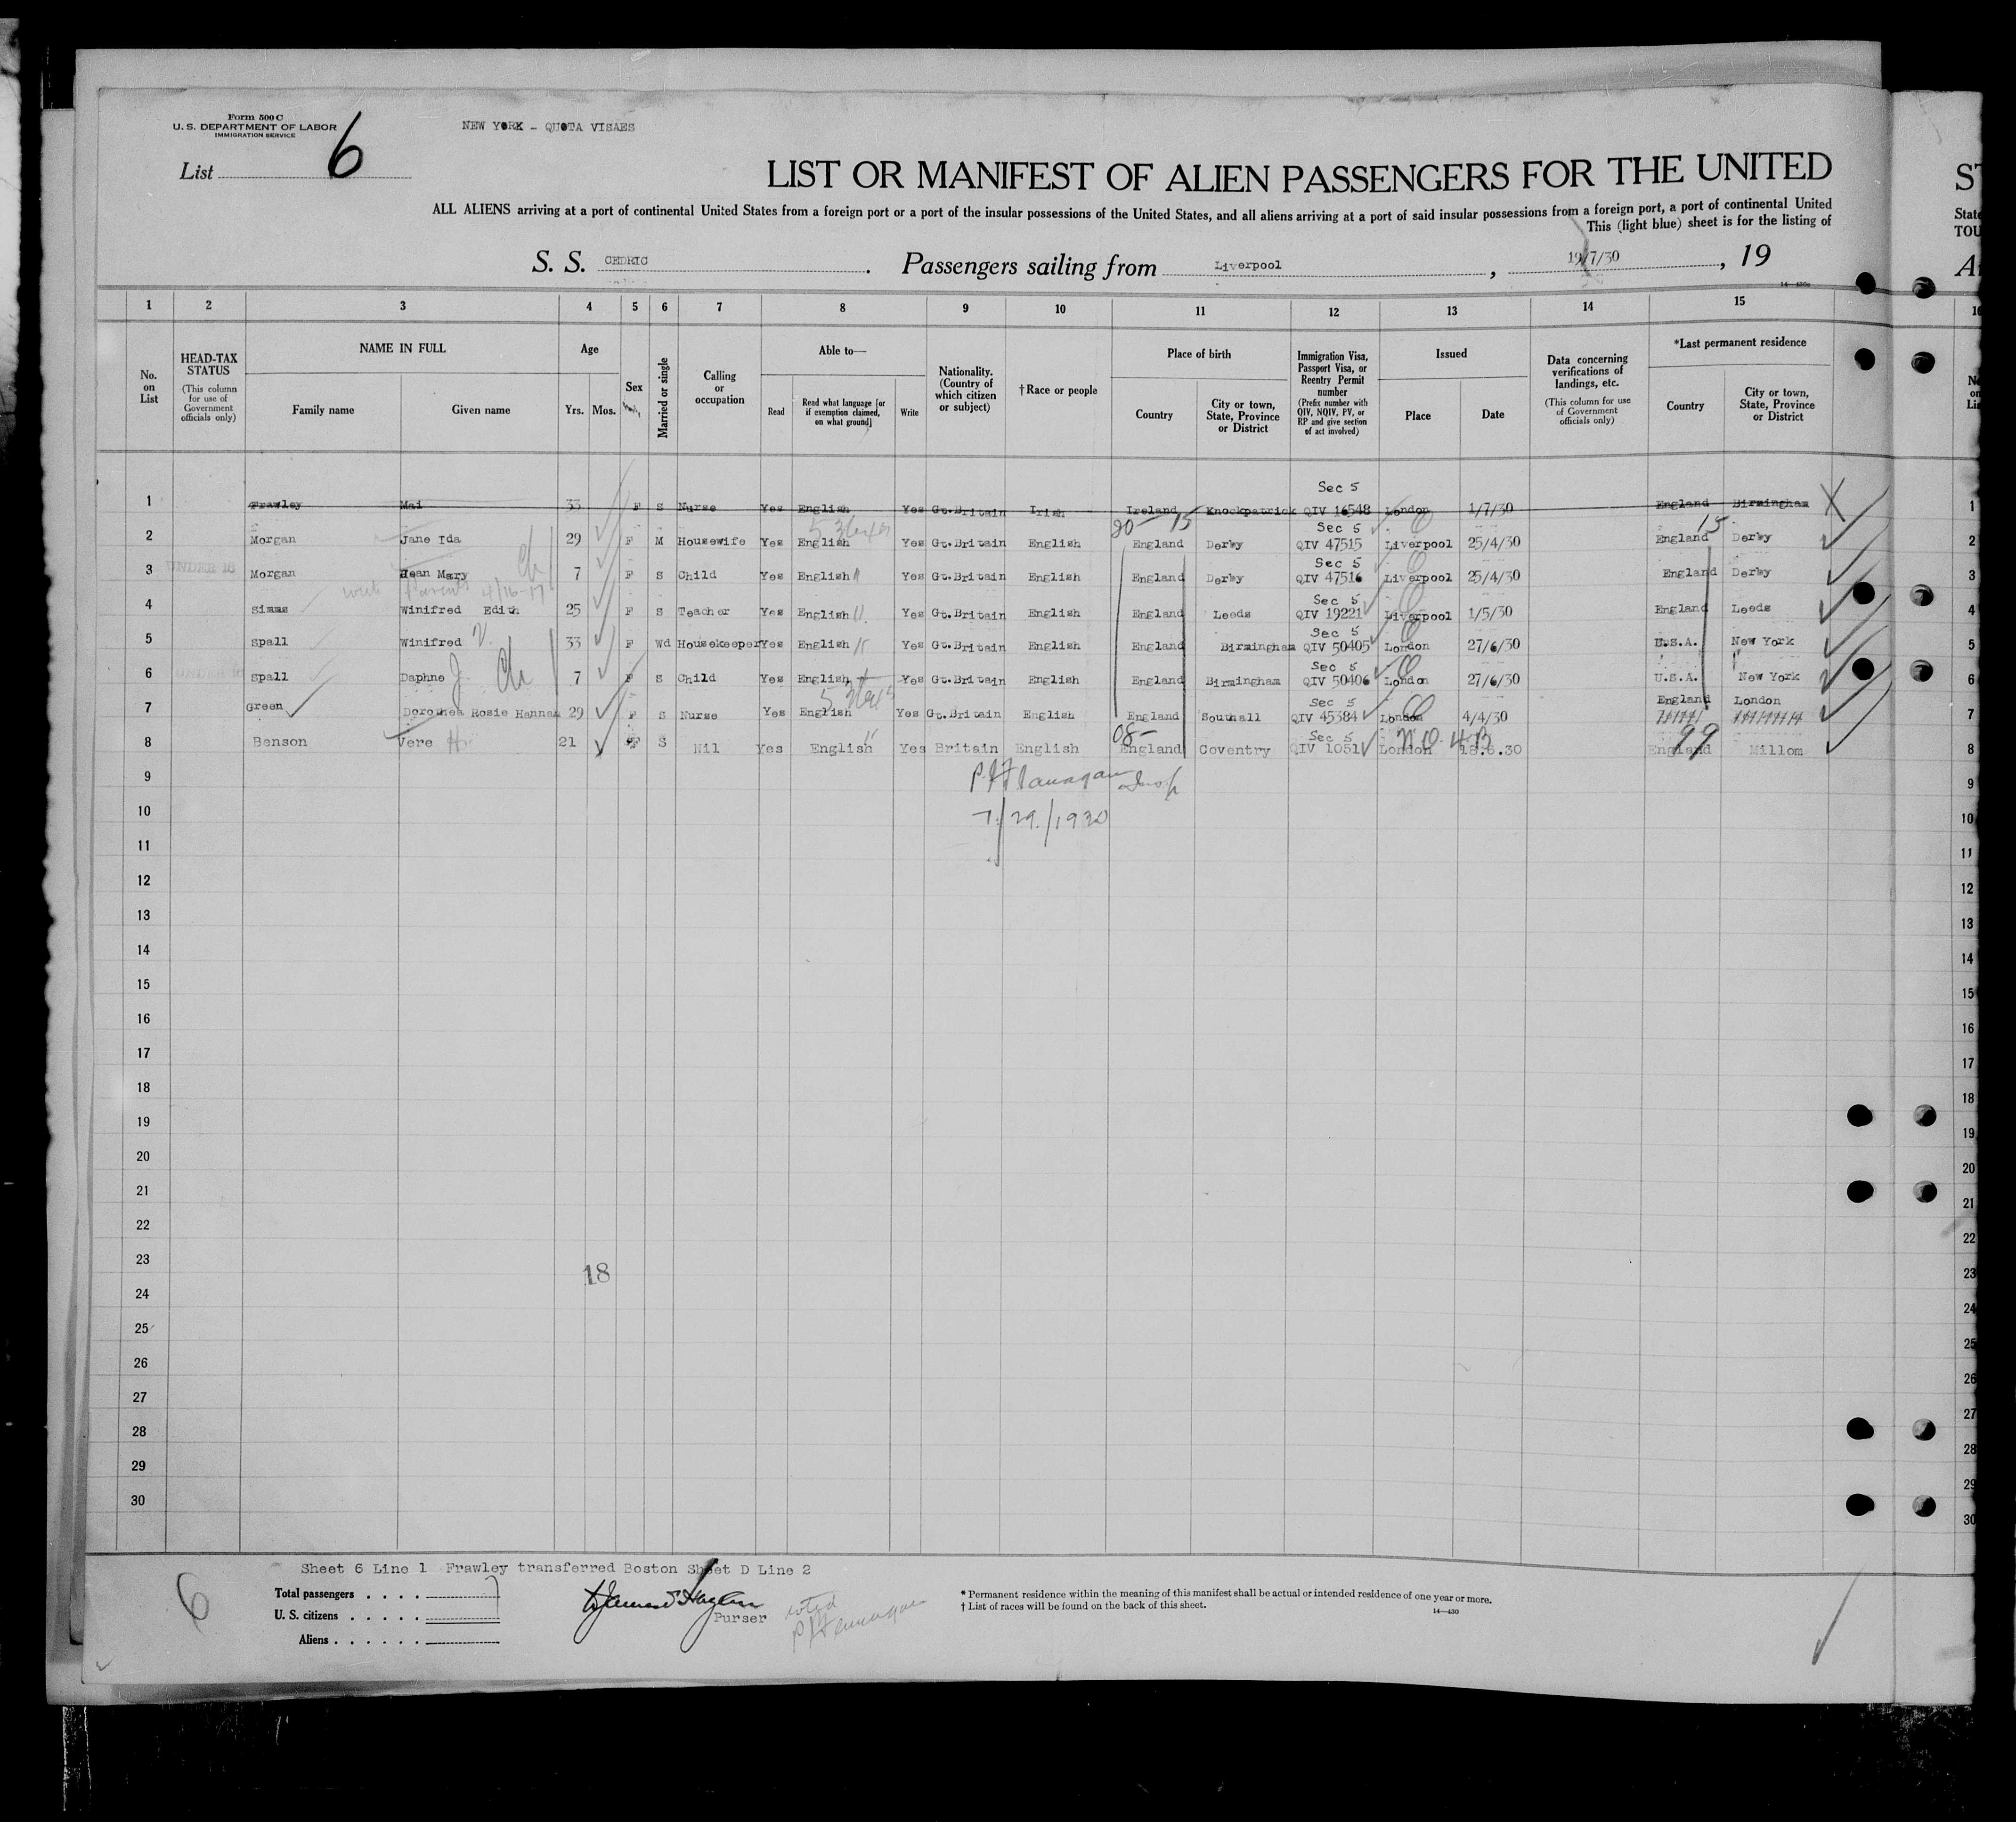 Form 500 C
U. S. DEPARTMENT OF LABOR
IMMIGRATION SERVICE
NEW YORK - QUOTA VISAES
List 6
LIST OR MANIFEST OF ALIEN PASSENGERS FOR THE UNITED
ST
ALL ALIENS arriving at a port of continental United States from a foreign port or a port of the insular possessions of the United States, and all aliens arriving at a port of said insular possessions from a foreign port, a port of continental United
State
This (light blue) sheet is for the listing of
TOU
S. S. CEDRIC. Passengers sailing from Liverpool, 19/7/30, 19
14—430a
1 2 3 4 5 6 7 8 9 10 11 12 13 14 15 16
No. on List
HEAD-TAX STATUS (This column for use of Government officials only)
NAME IN FULL
Family name Given name
Age
Yrs. Mos.
Sex
Married or single
Calling or occupation
Able to—
Read
Read what language [or if exemption claimed, on what ground]
Write
Nationality. (Country of which citizen or subject)
† Race or people
Place of birth
Country
City or town, State, Province or District
Immigration Visa, Passport Visa, or Reentry Permit number (Prefix number with QIV, NQIV, PV, or RP and give section of act involved)
Issued
Place Date
Data concerning verifications of landings, etc. (This column for use of Government officials only)
*Last permanent residence
Country
City or town, State, Province or District
Sec 5
1 Frawley Mai 33 F S Nurse Yes English Yes Gt.Britain Irish Ireland Knockpatrick QIV 16548 London 1/7/30 England Birmingham X 1
20 15 Sec 5 15
2 Morgan Jane Ida 29 F M Housewife Yes English Yes Gt.Britain English England Derby QIV 47515 Liverpool 25/4/30 England Derby 2
Sec 5
3 UNDER 16 Morgan Jean Mary 7 F S Child Yes English Yes Gt.Britain English England Derby QIV 47516 Liverpool 25/4/30 England Derby 3
Sec 5
4 Simms Winifred Edith 25 F S Teacher Yes English Yes Gt.Britain English England Leeds QIV 19221 Liverpool 1/5/30 England Leeds 4
Sec 5
5 Spall Winifred V. 33 F Wd Housekeeper Yes English Yes Gt.Britain English England Birmingham QIV 50405 London 27/6/30 U.S.A. New York 5
Sec 5
6 Spall Daphne J Ch 7 F S Child Yes English Yes Gt.Britain English England Birmingham QIV 50406 London 27/6/30 U.S.A. New York 6
Sec 5 England London
7 Green Dorothea Rosie Hannah 29 F S Nurse Yes English Yes Gt.Britain English England Southall QIV 45384 London 4/4/30 7
08- Sec 5 99
8 Benson Vere H 21 F S Nil Yes English Yes Britain English England Coventry QIV 1051 London 18.6.30 England Millom 8
9 P J Flanagan Insp 9
10 7/29/1930 10
11 11
12 12
13 13
14 14
15 15
16 16
17 17
18 18
19 19
20 20
21 21
22 22
23 18 23
24 24
25 25
26 26
27 27
28 28
29 29
30 30
Sheet 6 Line 1 Frawley transferred Boston Sheet D Line 2
6
Total passengers
U. S. citizens
Aliens
Purser
noted
P J Flanagan
* Permanent residence within the meaning of this manifest shall be actual or intended residence of one year or more.
† List of races will be found on the back of this sheet.
14—430